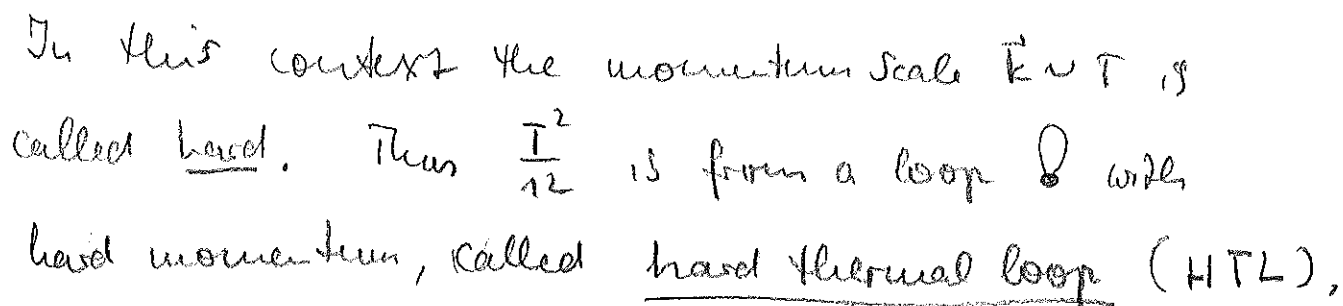 In this context the momentum scale k⃗ ~ T is
called hard. Thus T²/12 is from a loop with
hard momentum, called hard thermal loop (HTL),